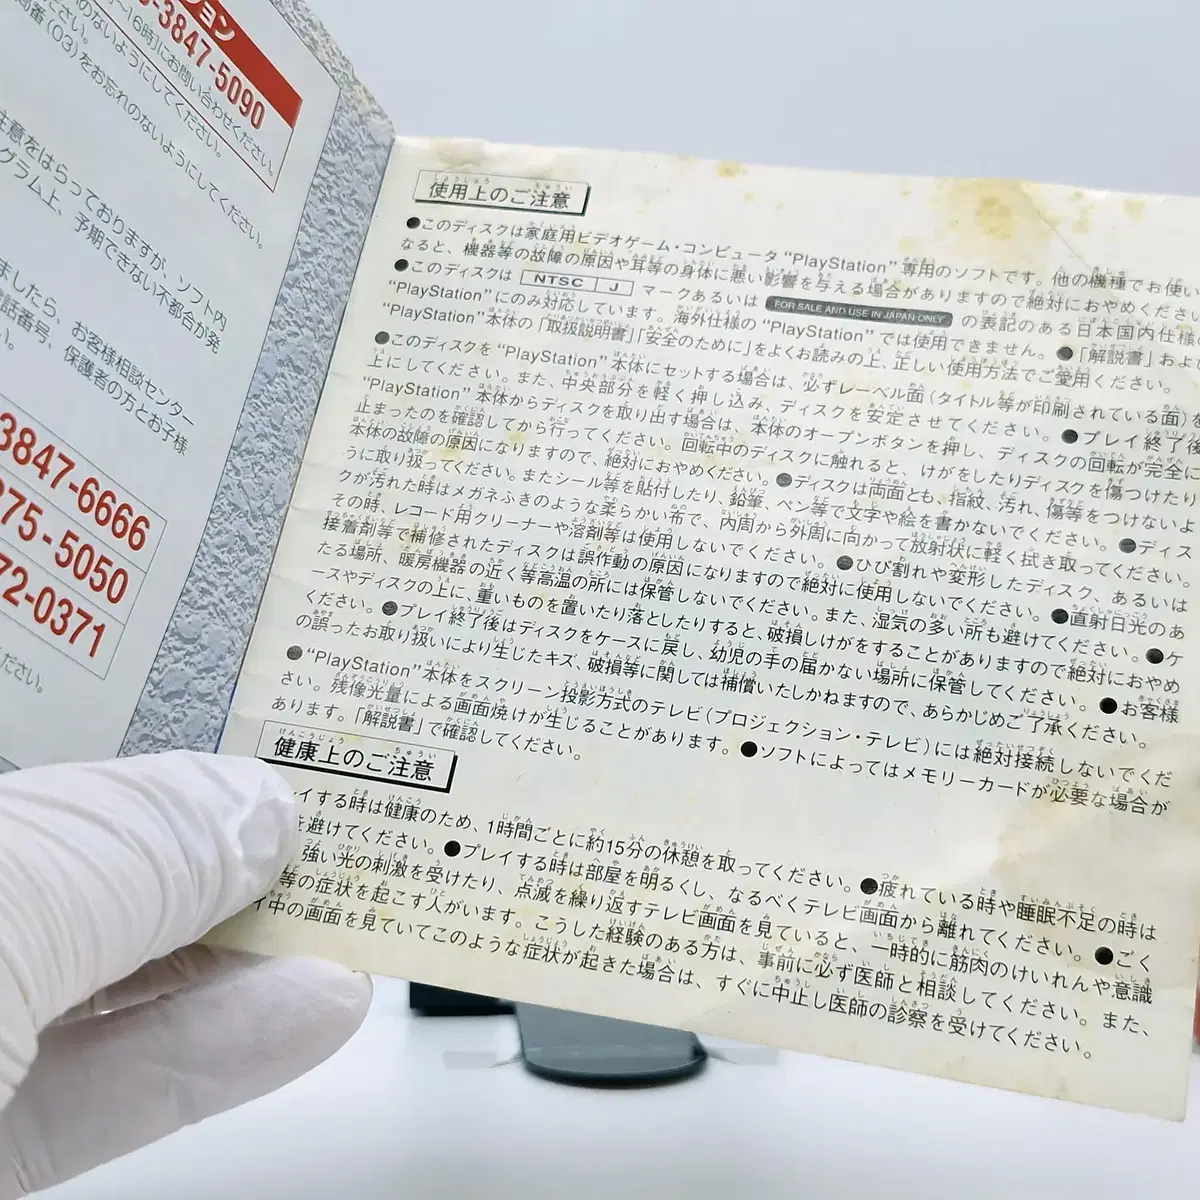 ョン
3-3847-5090
～16時]にお問い合わせください。
のないようにしてください。
(03)をお忘れのないようにしてください。
注意をはらっておりますが、ソフト内
グラム上、予期できない不都合が発
ましたら、お客様相談センター
電話番号、保護者の方とお子様
い。
3847-6666
75-5050
72-0371
ださい。
使用上のご注意
●このディスクは家庭用ビデオゲーム・コンピュータ“PlayStation”専用のソフトです。他の機種でお使い
なると、機器等の故障の原因や耳等の身体に悪い影響を与える場合がありますので絶対におやめくださ
●このディスクは NTSC J マークあるいは FOR SALE AND USE IN JAPAN ONLY の表記のある日本国内仕様の
“PlayStation”にのみ対応しています。海外仕様の“PlayStation”では使用できません。●「解説書」およ
“PlayStation”本体の「取扱説明書」「安全のために」をよくお読みの上、正しい使用方法でご愛用ください。
●このディスクを“PlayStation”本体にセットする場合は、必ずレーベル面(タイトル等が印刷されている面)を
上にしてください。また、中央部分を軽く押し込み、ディスクを安定させてください。●プレイ終了後
“PlayStation”本体からディスクを取り出す場合は、本体のオープンボタンを押し、ディスクの回転が完全に
止まったのを確認してから行ってください。回転中のディスクに触れると、けがをしたりディスクを傷つけたり
本体の故障の原因になりますので、絶対におやめください。●ディスクは両面とも、指紋、汚れ、傷等をつけないよ
うに取り扱ってください。またシール等を貼付したり、鉛筆、ペン等で文字や絵を書かないでください。●ディス
クが汚れた時はメガネふきのような柔らかい布で、内周から外周に向かって放射状に軽く拭き取ってください。
その時、レコード用クリーナーや溶剤等は使用しないでください。●ひび割れや変形したディスク、あるいは
接着剤等で補修されたディスクは誤作動の原因になりますので絶対に使用しないでください。●直射日光のあ
たる場所、暖房機器の近く等高温の所には保管しないでください。また、湿気の多い所も避けてください。●ケ
ースやディスクの上に、重いものを置いたり落としたりすると、破損しけがをすることがありますので絶対におやめ
ください。●プレイ終了後はディスクをケースに戻し、幼児の手の届かない場所に保管してください。●お客様
の誤ったお取り扱いにより生じたキズ、破損等に関しては補償いたしかねますので、あらかじめご了承ください。
●“PlayStation”本体をスクリーン投影方式のテレビ(プロジェクション・テレビ)には絶対接続しないでくだ
さい。残像光量による画面焼けが生じることがあります。●ソフトによってはメモリーカードが必要な場合が
あります。「解説書」で確認してください。
健康上のご注意
イする時は健康のため、1時間ごとに約15分の休憩を取ってください。●疲れている時や睡眠不足の時は
を避けてください。●プレイする時は部屋を明るくし、なるべくテレビ画面から離れてください。●ごく
強い光の刺激を受けたり、点滅を繰り返すテレビ画面を見ていると、一時的に筋肉のけいれんや意識
等の症状を起こす人がいます。こうした経験のある方は、事前に必ず医師と相談してください。また、
イ中の画面を見ていてこのような症状が起きた場合は、すぐに中止し医師の診察を受けてください。